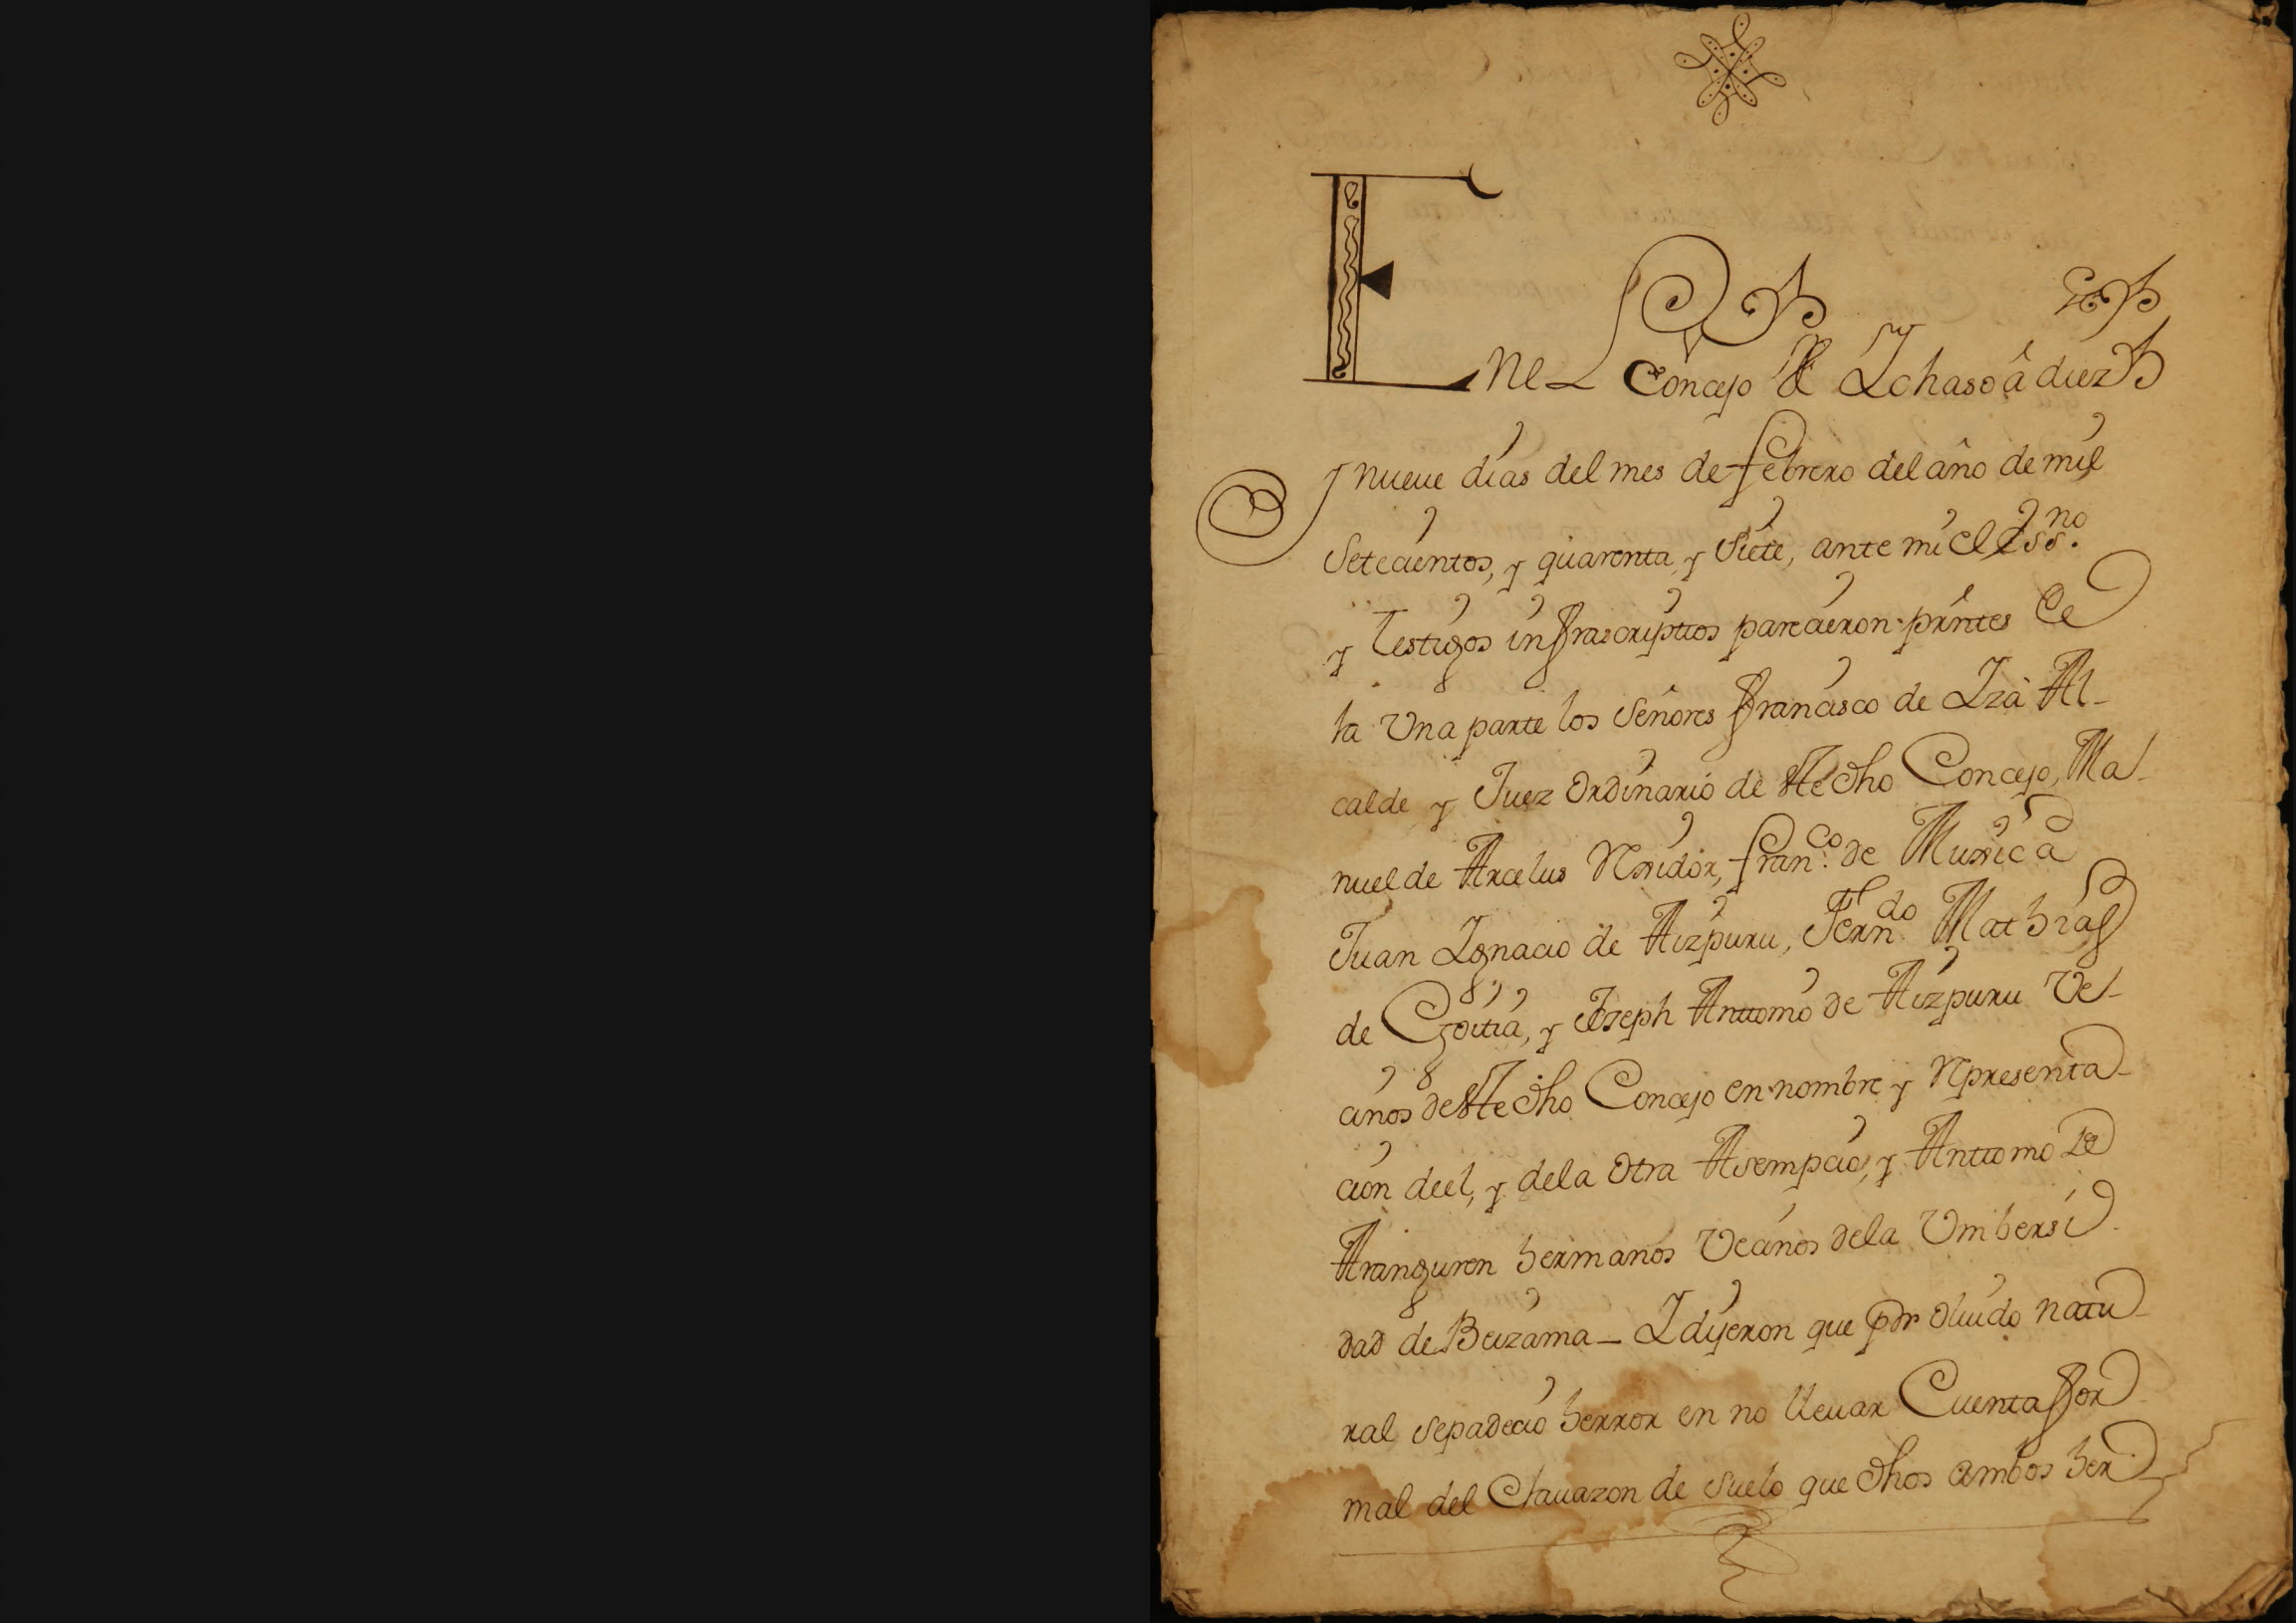 Enel Concejo de Ichaso â diez
y nueue dias del mes de febrero del año de mil
Setecientos, y quarenta y Siete, ante mi el Essno.
y testigos infrascriptios parecieron prntes de
la Una parte los Señores Francisco de Iza Al-
calde y Juez Ordinario de este dho Concejo, Ma-
nuel de Arcelus Rexidor, franco. de Muxica
Juan Ignacio de Aizpuru, Ferndo. Mathias
de Goitia, y Joseph Anttonio de Aizpuru Ve-
cinos de este dho Concejo en nombre y Representa-
cion deel, y dela Otra Asempcio, y Anttonio de
Aranguren hermanos Vecinos dela Unibersi-
dad de Beizama - I dijeron que por oluido natu-
ral sepadecio herror en no lleuar Cuenta for-
mal del Clauazon de suelo que dhos ambos her-